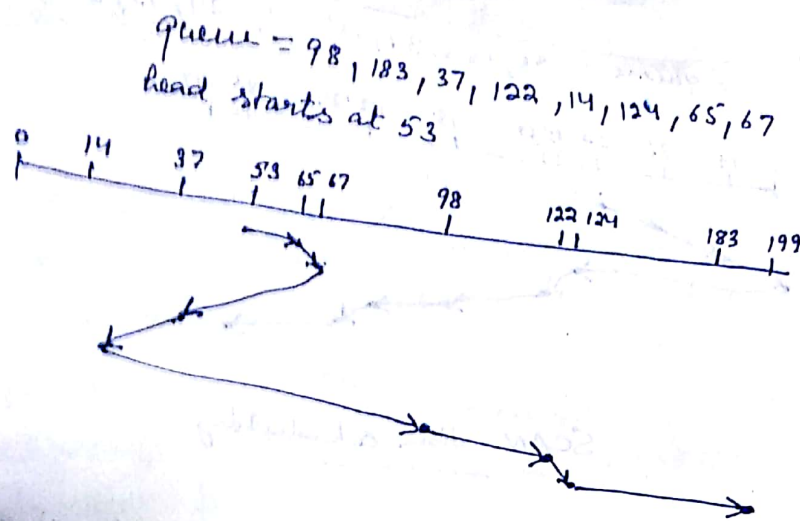 queue = 98, 183, 37, 122, 14, 124, 65, 67
head starts at 53
0 14 37 53 65 67 98 122 124 183 199